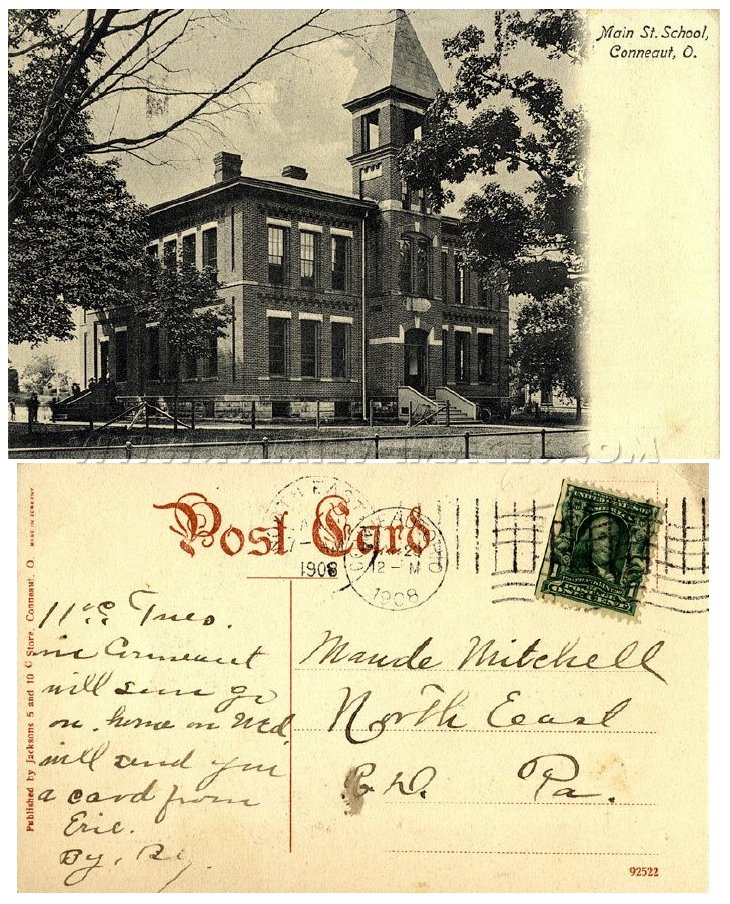 Main St. School,
Conneaut, O.
Post Card
1908
12-M
1908
UNITED STATES
Published by Jacksons 5 and 10 C Store, Conneaut, O.
MADE IN GERMANY
Tues.
in Conneaut
will soon go
on. home on Wed.
will send you
a card from
Erie.
By, By.
Maude Mitchell
North East
Pa.
92522